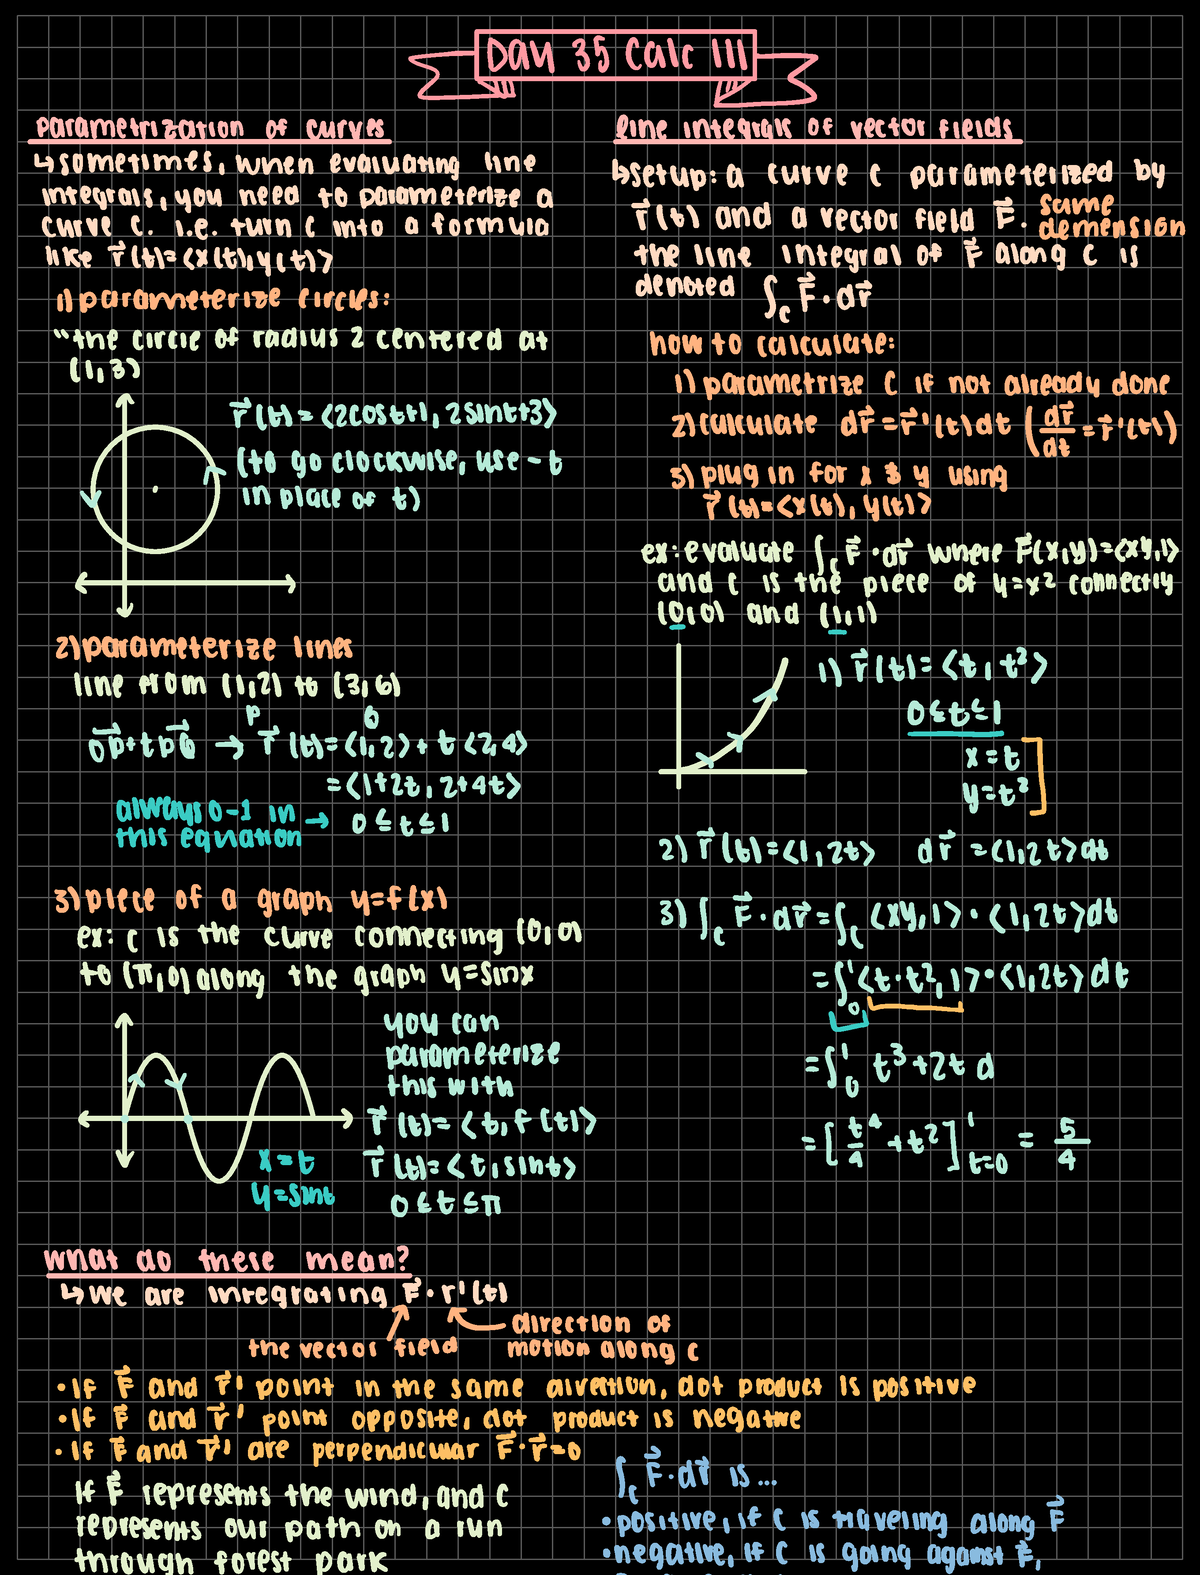 Day 35 Calc III
parametrization of curves
↳ sometimes, when evaluating line
integrals, you need to parameterize a
curve C. i.e. turn C into a formula
like r⃗(t)=<x(t),y(t)>
1) parameterize circles:
"the circle of radius 2 centered at
(1,3)
r⃗(t)=<2cost+1, 2sint+3>
(to go clockwise, use -t
in place of t)
2) parameterize lines
line from (1,2) to (3,6)
P Q
OP⃗+tPQ⃗ → r⃗(t)=<1,2>+t<2,4>
=<1+2t, 2+4t>
always 0-1 in
this equation → 0≤t≤1
3) piece of a graph y=f(x)
ex: C is the curve connecting (0,0)
to (π,0) along the graph y=sinx
you can
parameterize
this with
r⃗(t)=<t,f(t)>
r⃗(t)=<t,sint>
0≤t≤π
x=t
y=sint
line integrals of vector fields
↳ setup: a curve C parameterized by
r⃗(t) and a vector field F⃗. same demension
the line integral of F⃗ along C is
denoted ∫_C F⃗·dr⃗
how to calculate:
1) parametrize C if not already done
2) calculate dr⃗=r⃗'(t)dt (dr⃗/dt=r⃗'(t))
3) plug in for x & y using
r⃗(t)=<x(t), y(t)>
ex: evaluate ∫_C F⃗·dr⃗ where F⃗(x,y)=<xy,1>
and C is the piece of y=x² connectly
(0,0) and (1,1)
1) r⃗(t)=<t, t²>
0≤t≤1
x=t
y=t²
2) r⃗(t)=<1,2t> dr⃗=<1,2t>dt
3) ∫_C F⃗·dr⃗=∫_C <xy,1>·<1,2t>dt
=∫₀¹<t·t²,1>·<1,2t>dt
=∫₀¹ t³+2t d
=[t⁴/4+t²]¹_{t=0} = 5/4
What do these mean?
↳ we are integrating F⃗·r'(t)
the vector field
direction of
motion along C
• If F⃗ and r⃗' point in the same direction, dot product is positive
• If F⃗ and r⃗' point opposite, dot product is negative
• If F⃗ and r⃗' are perpendicular F⃗·r⃗=0
If F⃗ represents the wind, and C
represents our path on a run
through forest park
∫_C F⃗·dr⃗ is...
• positive, if C is traveling along F⃗
• negative, if C is going against F⃗,